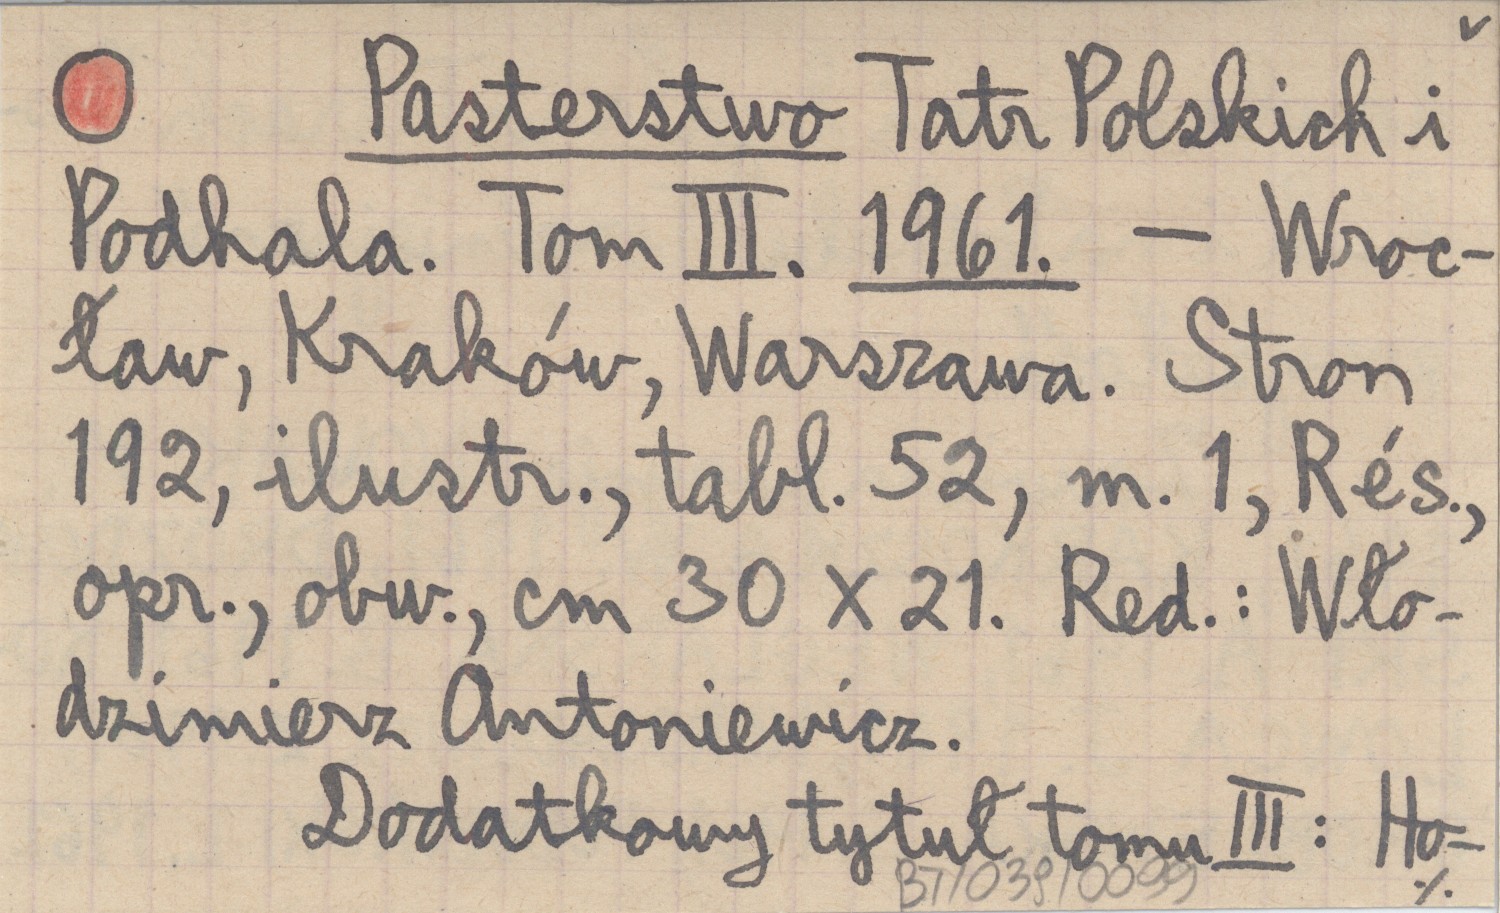 Pasterstwo Tatr Polskich i
Podhala. Tom III. 1961. — Wroc-
ław, Kraków, Warszawa. Stron
192, ilustr., tabl. 52, m. 1, Rés.,
opr., obw., cm 30 X 21. Red.: Wło-
dzimierz Antoniewicz.
Dodatkowy tytuł tomu III: Ho-
BT/039/0099
·/.